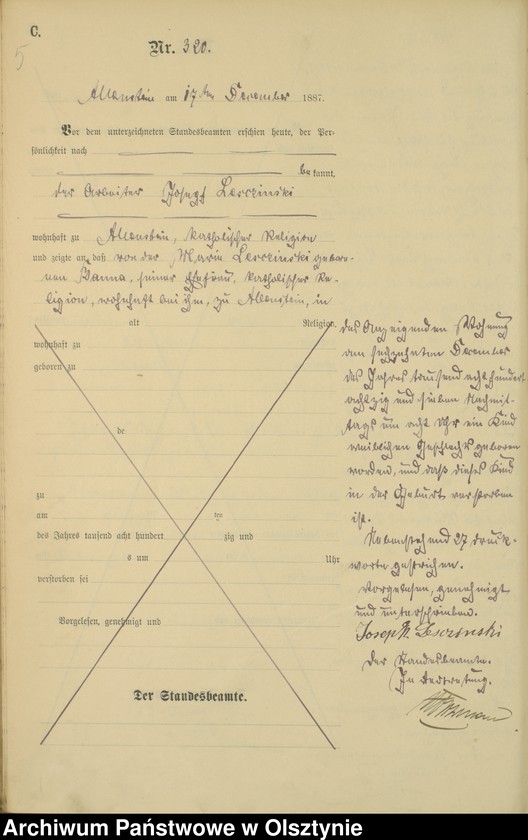 C.
5
Nr. 320.
Allenstein am 17ten December 1887.
Vor dem unterzeichneten Standesbeamten erschien heute, der Per-
sönlichkeit nach
be kannt,
der Arbeiter Joseph Lesczinski
wohnhaft zu Allenstein, katholischer Religion
und zeigte an, daß von der Maria Lesczinski gebore-
nen Panna, seiner Ehefrau, katholischer Re-
ligion, wohnhaft bei ihm, zu Allenstein, in
alt Religion,
wohnhaft zu
geboren zu
de
zu
am ten
des Jahres tausend acht hundert zig und
s um Uhr
verstorben sei
Vorgelesen, genehmigt und
Der Standesbeamte.
des Anzeigenden Wohnung
am sechzehnten December
des Jahres tausend acht hundert
achtzig und sieben Nachmit-
tags um acht Uhr ein Kind
weiblichen Geschlechts geboren
worden, und daß dieses Kind
in der Geburt verstorben
ist.
Nebenstehend 27 Druck-
worte gestrichen.
Vorgelesen, genehmigt
und unterschrieben.
Joseph Lesczinski
Der Standesbeamte.
In Vertretung.
Archiwum Państwowe w Olsztynie